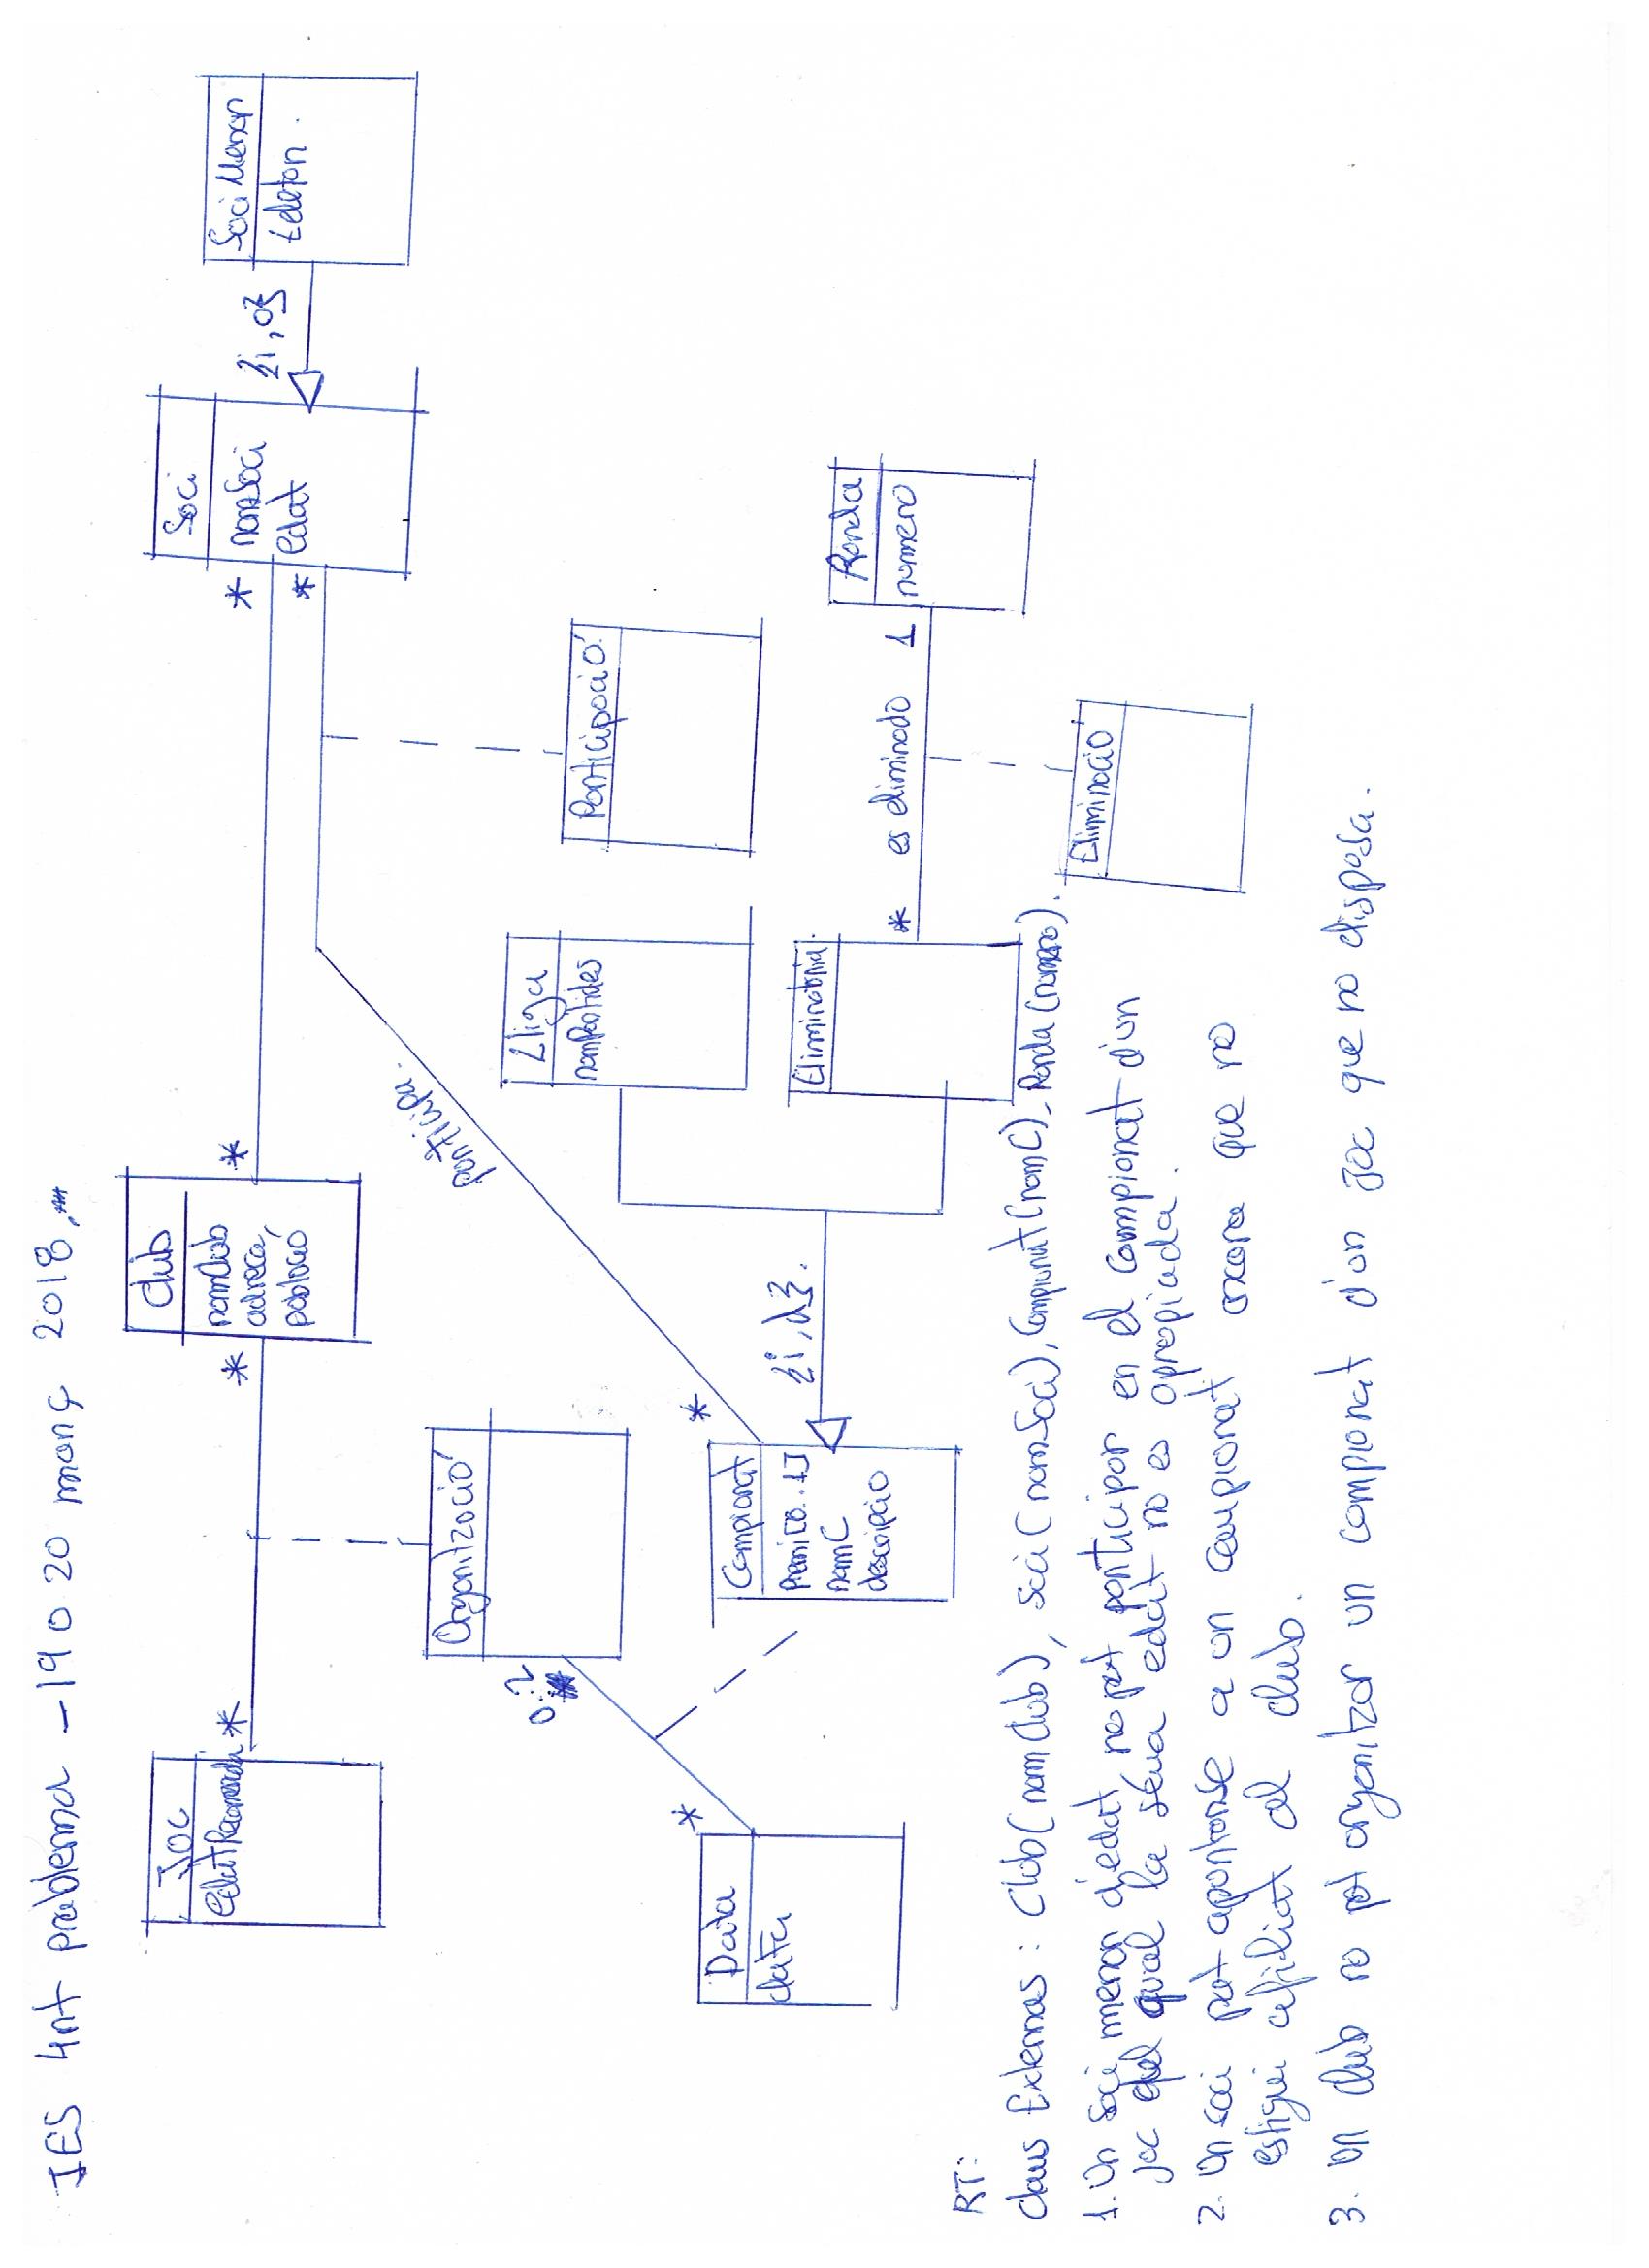 IES 4nt problema - 19 o 20 març 2018
Joc
edatRecomenda
*
*
Club
nomClub
adreca,
població
*
*
*
Soci
nomSoci
edat
{i,o}
Soci Menor
telefon.
participa.
Organització
0..2
*
Data
data
*
Campionat
Premi[0..1]
nomC
descripcio
{i,d}.
Lliga
nomPartides
Participació
Eliminatoria
* es eliminado 1
Ronda
numero
Eliminació
RT:
Claus Externas: Club(nomClub), Soci(nomSoci), Campionat(nomC), Ronda(numero).
1. Un soci menor d'edat no pot participar en el campionat d'un
joc del qual la seva edat no es apropiada.
2. Un soci pot apontarse a un campionat encara que no
estigui afiliat al club.
3. Un club no pot organitzar un campionat d'un joc que no disposa.